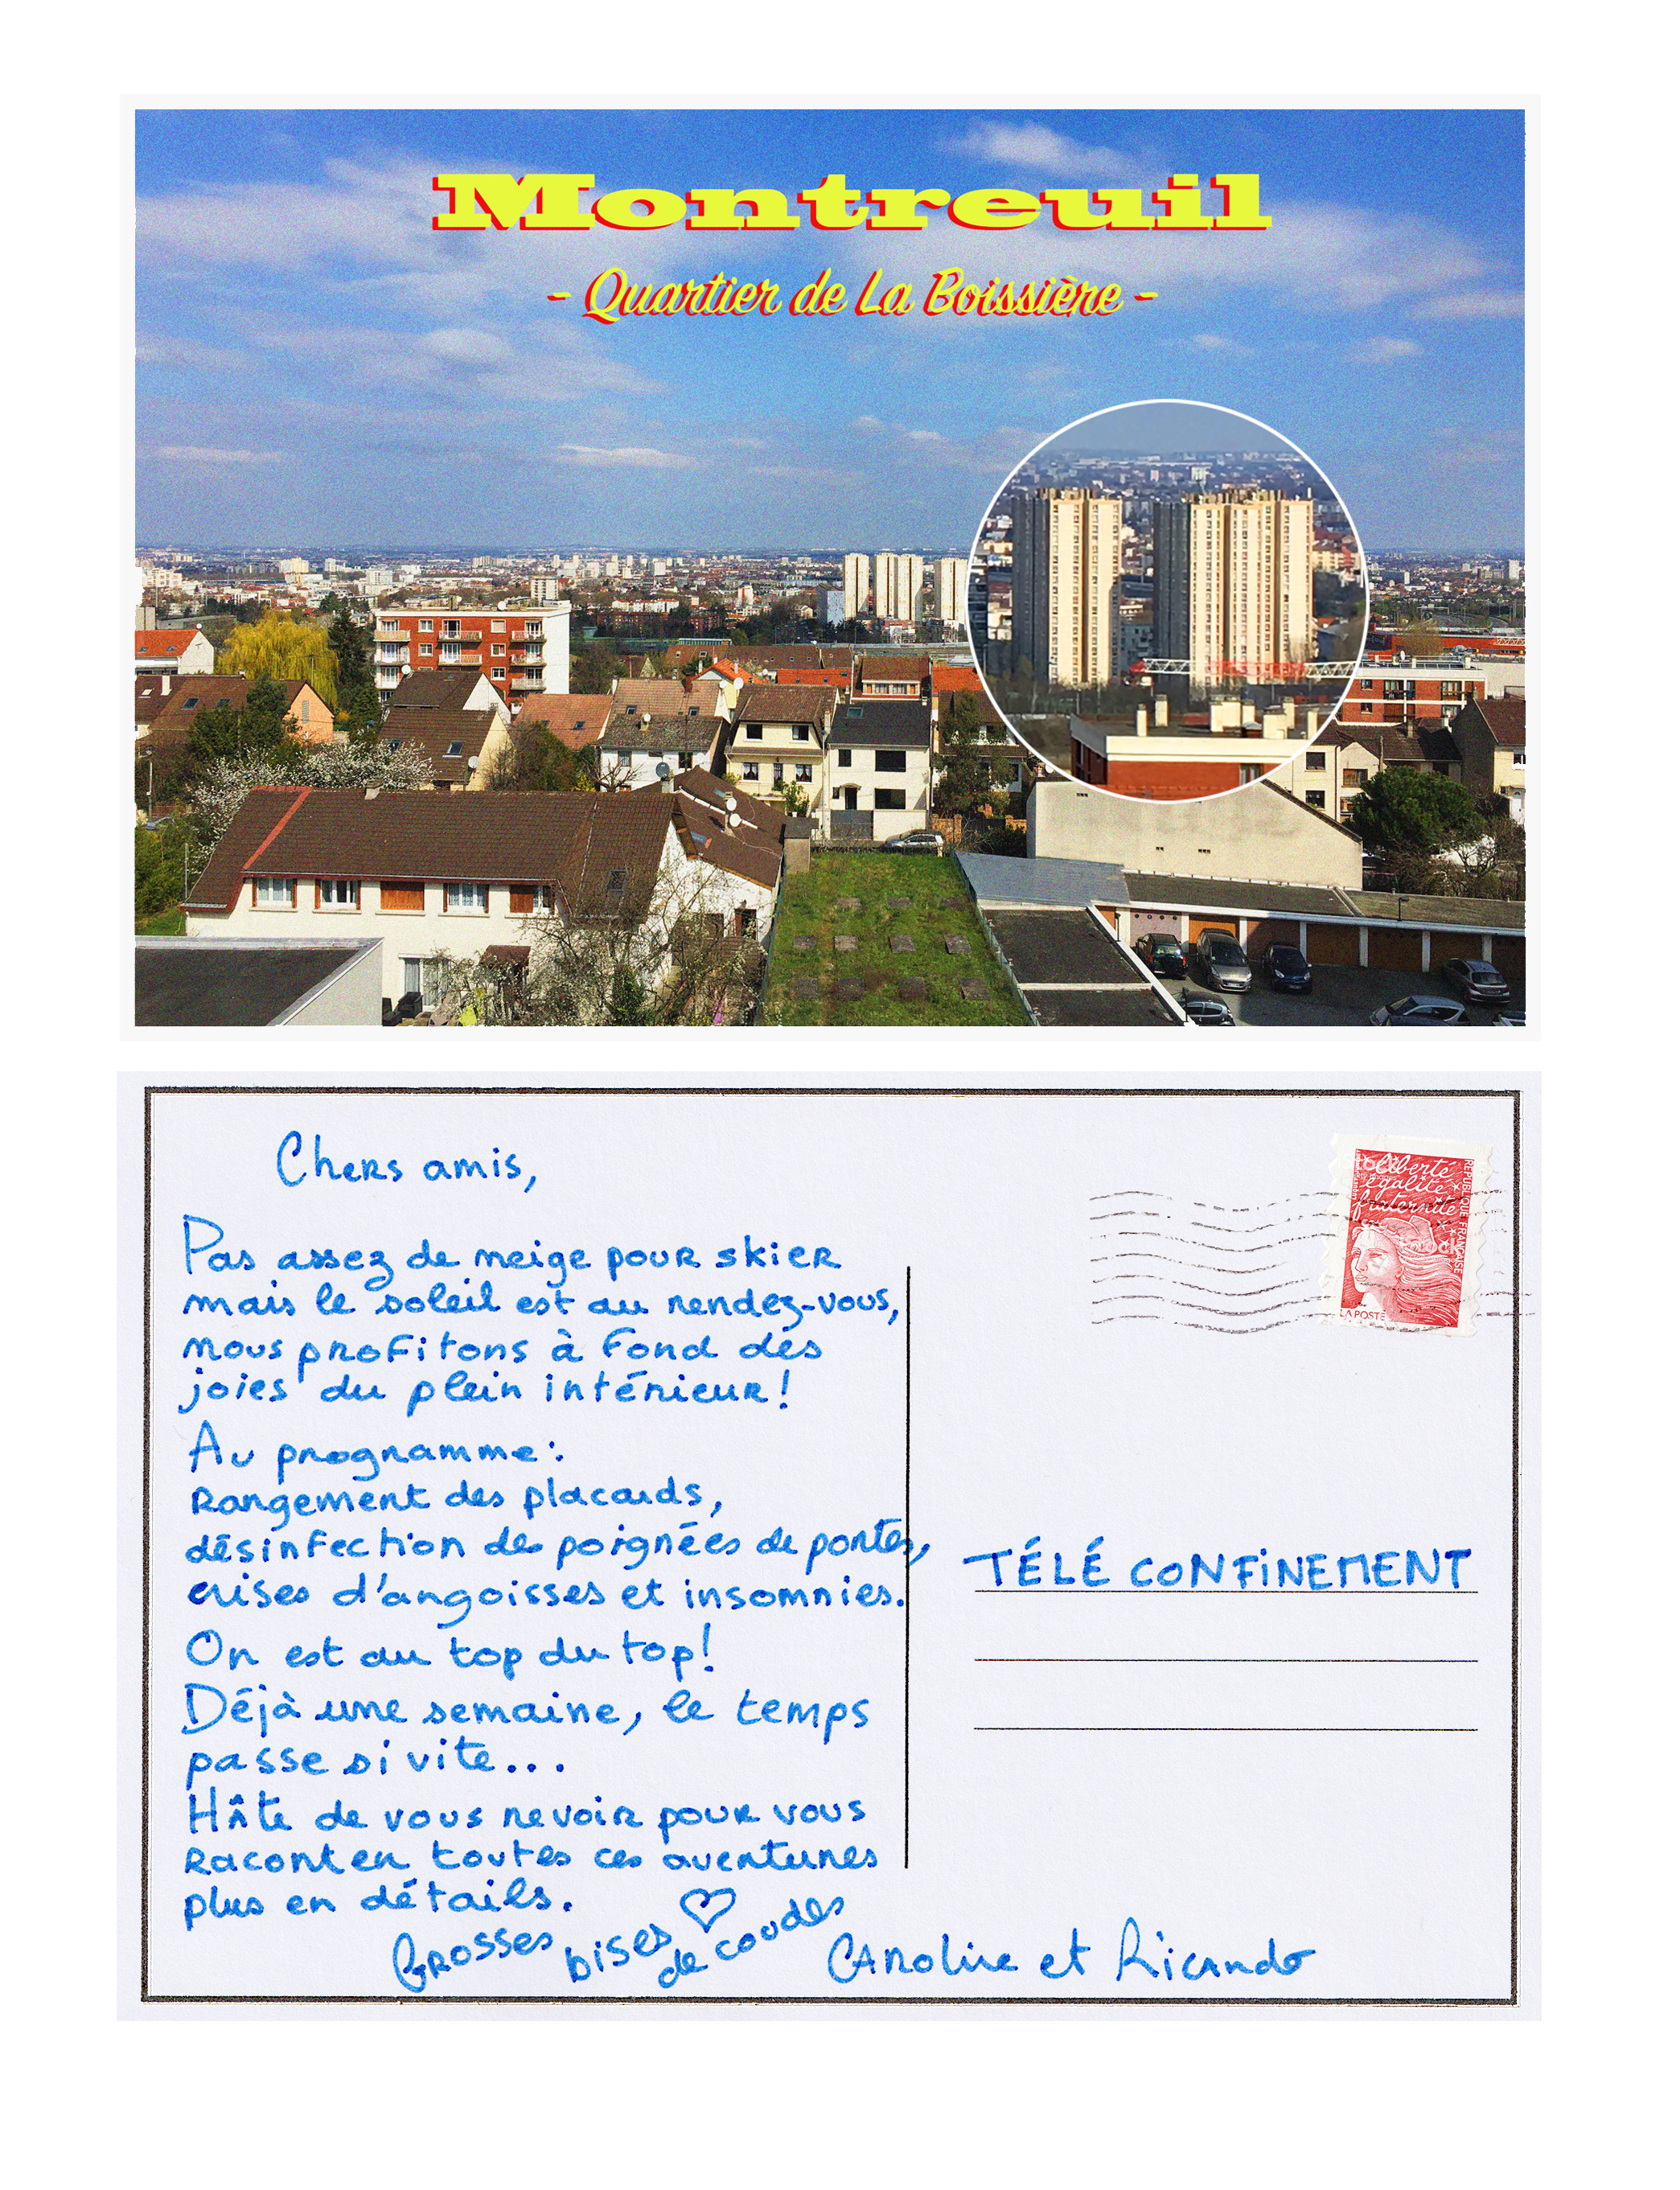 Montreuil
- Quartier de La Boissière -
Chers amis,
Pas assez de neige pour skier
mais le soleil est au rendez-vous,
nous profitons à fond des
joies du plein intérieur!
Au programme:
Rangement des placards,
désinfection des poignées de portes,
crises d'angoisses et insomnies.
On est au top du top!
Déjà une semaine, le temps
passe si vite...
Hâte de vous revoir pour vous
raconter toutes ces aventures
plus en détails.
Grosses bises de coudes
Caroline et Ricardo
liberté
égalité
fraternité
RÉPUBLIQUE FRANÇAISE
LA POSTE
TÉLÉ CONFINEMENT